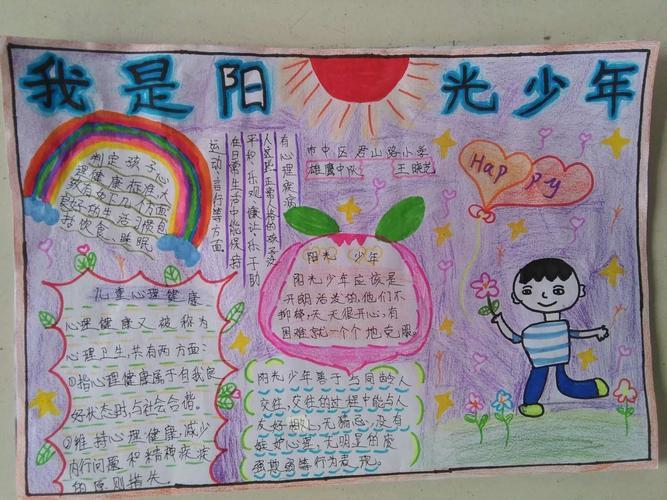 我是阳光少年
制定孩子心
理健康标准,大
致有如下几个方面
良好的生活习惯包
括饮食、睡眠
运动、言行等方面
在日常生活中能保持
平和、乐观、谦让、乐于助
人这些正常人格的孩子没
有心理疾病
市中区君山路小学
雄鹰中队
王晓艺
Happy
阳光 少年
阳光少年应该是
开朗活泼的,他们不
抑郁,天天很开心,有
困难就一个个地克服。
儿童心理健康
心理健康又被称为
心理卫生,共有两方面:
①指心理健康属于自我良
好状态时,与社会合谐。
②维持心理健康,减少
内行问题和精神疾状
的原则措失
阳光少年善于与同龄人
交往,交往的过程中能与人
友好相处,无猜忌,没有
嫉妒心里,无明显的皮
强欺弱等行为表现。